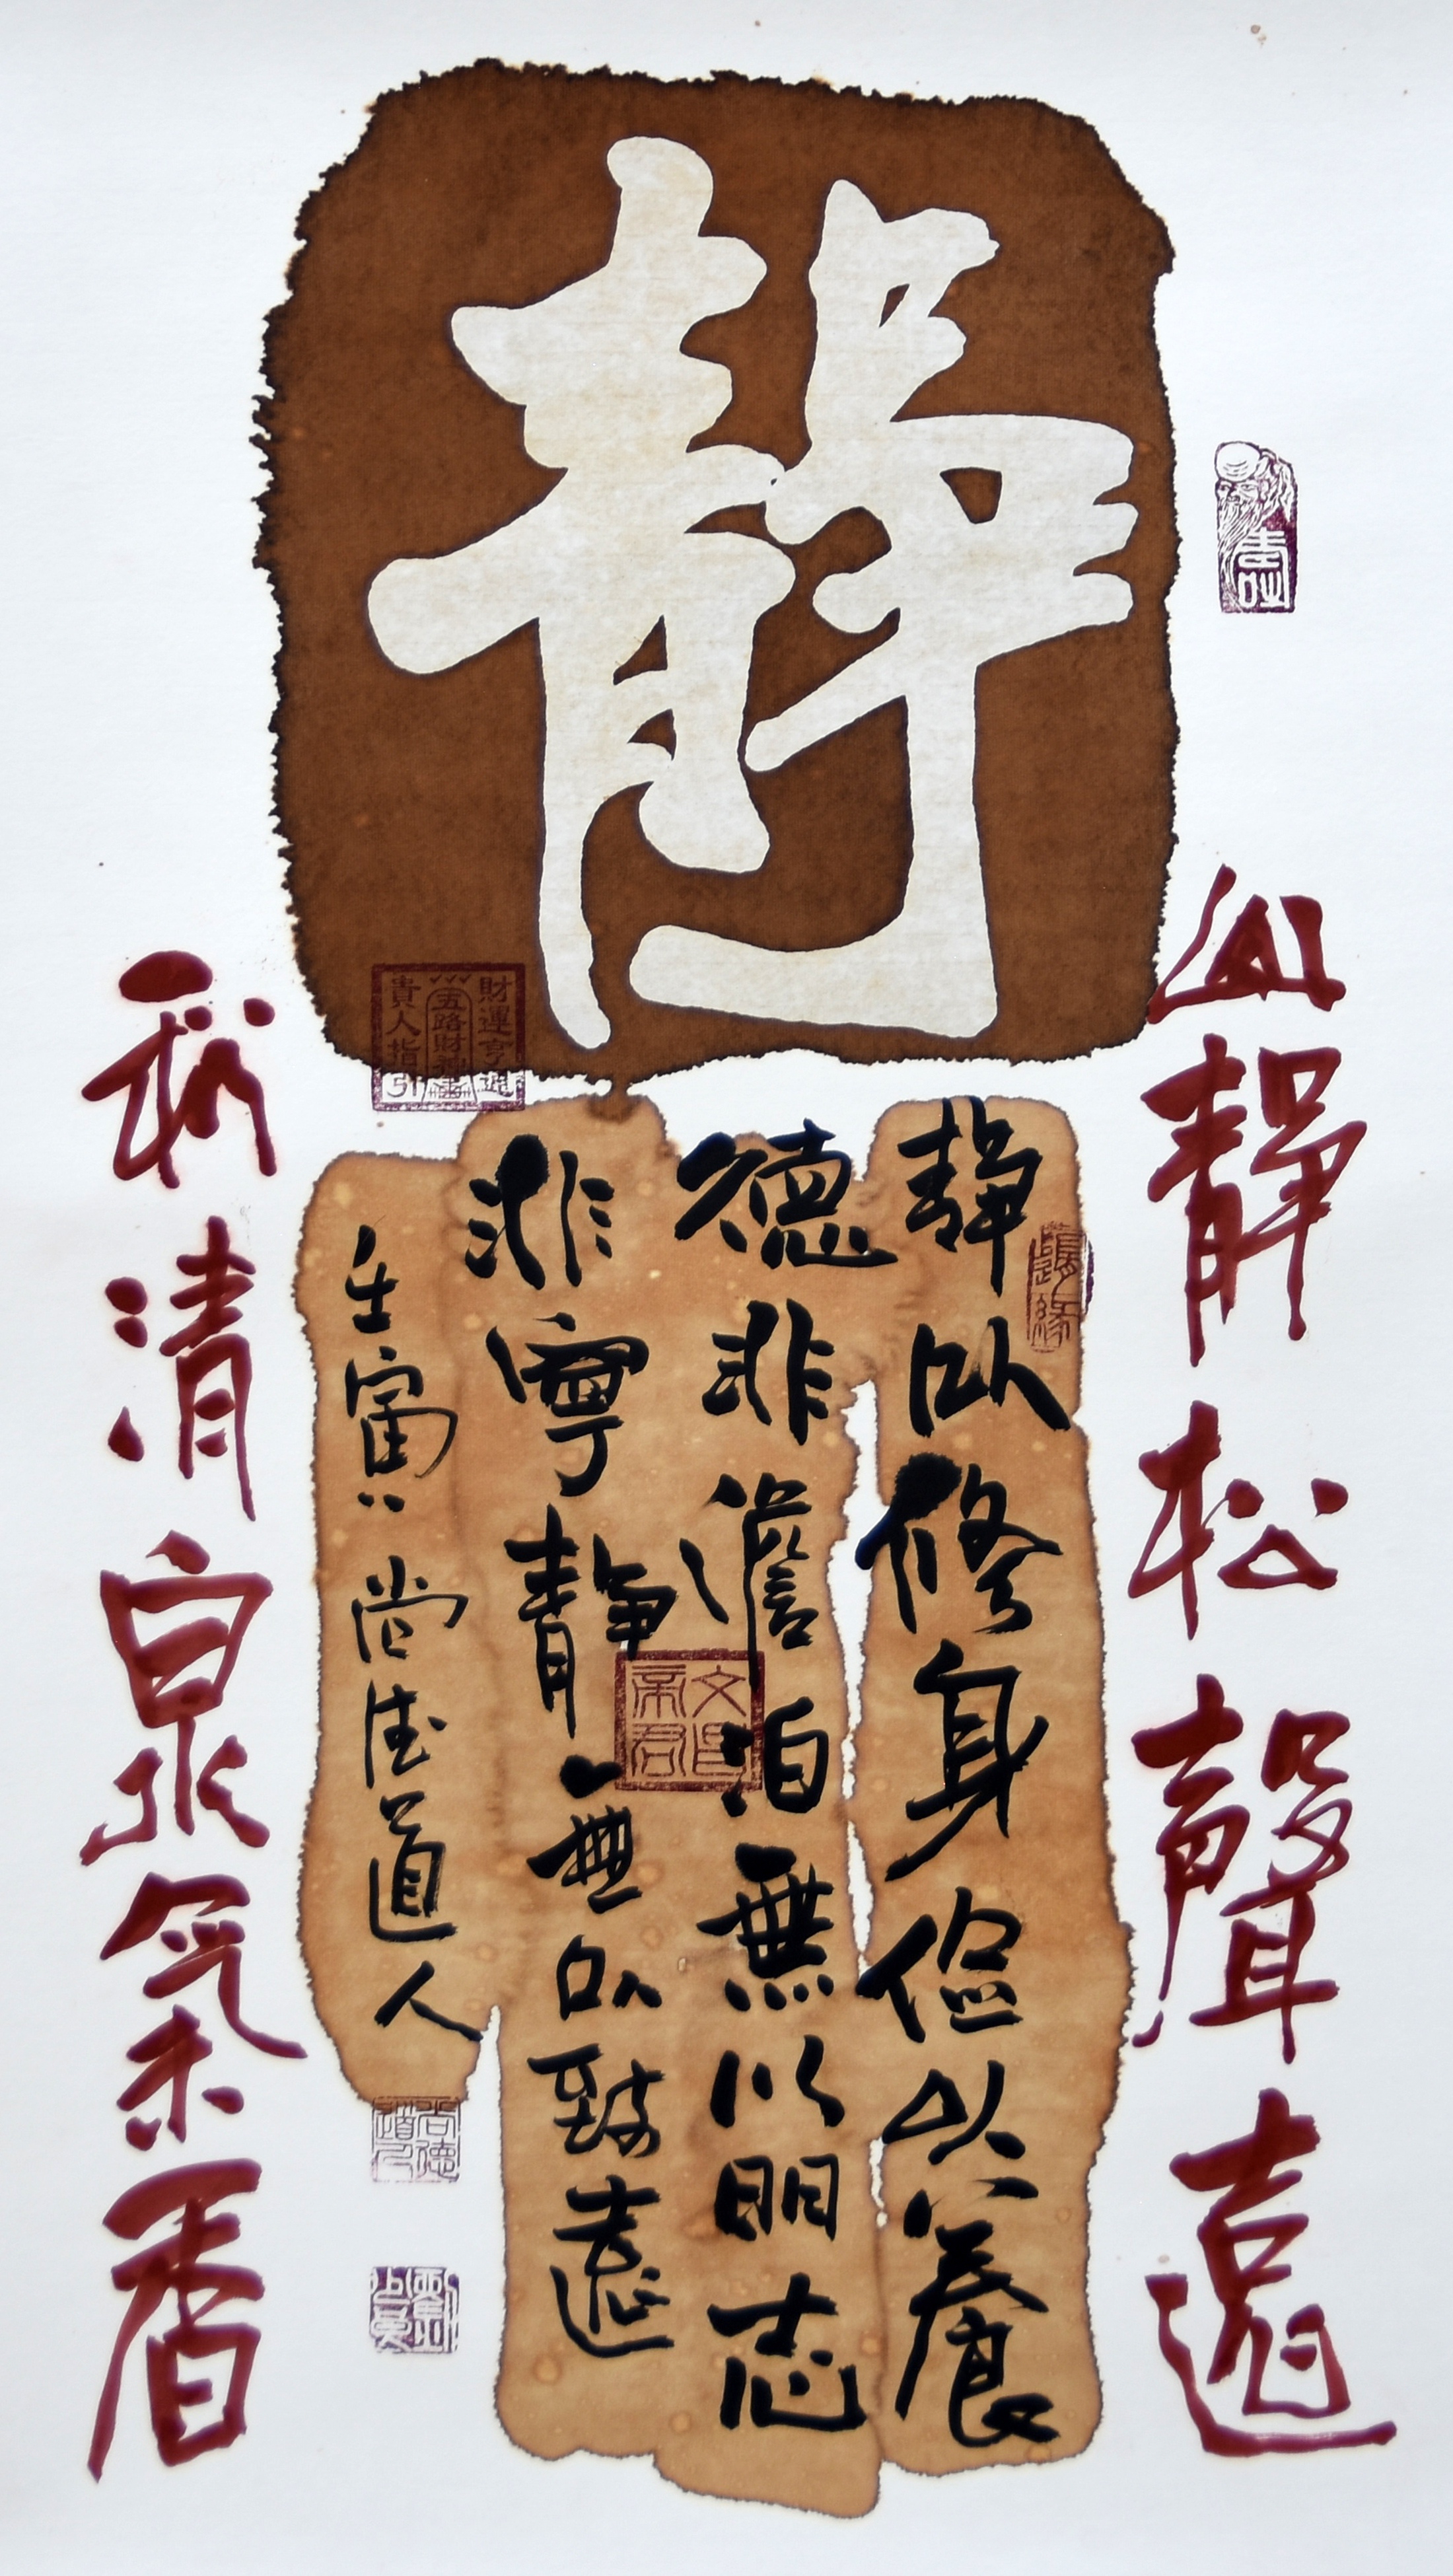 靜
山靜松聲遠
静以修身儉以養
德非澹泊無以明志
非寧静無以致遠
壬寅尚德道人
秋清泉氣香
財運亨通
五路財神
貴人指引
隨緣
文昌帝君
尚德道人